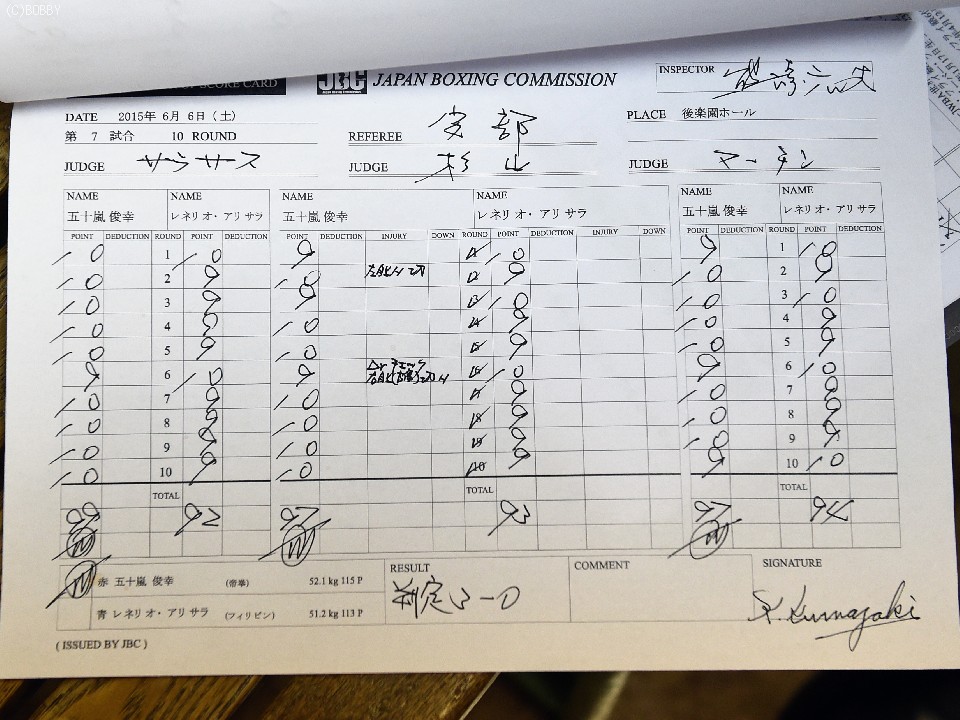 (C)BOBBY
SCORE CARD
JBC JAPAN BOXING COMMISSION
INSPECTOR
DATE 2015年 6月 6日 (土)
PLACE 後楽園ホール
第 7 試合 10 ROUND
REFEREE 安部
JUDGE サラサース
JUDGE 杉山
JUDGE マーチン
NAME NAME NAME NAME NAME NAME
五十嵐 俊幸 レネリオ・アリサラ 五十嵐 俊幸 レネリオ・アリサラ 五十嵐 俊幸 レネリオ・アリサラ
POINT DEDUCTION ROUND POINT DEDUCTION POINT DEDUCTION INJURY DOWN ROUND POINT DEDUCTION INJURY DOWN POINT DEDUCTION ROUND POINT DEDUCTION
10 1 10 9 1 10 9 1 10
10 2 9 10 2 9 10 2 9
10 3 9 9 3 10 10 3 10
10 4 9 10 4 9 10 4 9
10 5 9 10 5 9 10 5 9
9 6 10 9 6 10 9 6 10
10 7 9 10 7 9 10 7 9
10 8 9 10 8 9 10 8 9
10 9 9 10 9 9 10 9 9
10 10 9 10 10 9 9 10 10
TOTAL TOTAL TOTAL
99 92 97 93 97 94
赤 五十嵐 俊幸 (帝拳) 52.1 kg 115 P
青 レネリオ・アリサラ (フィリピン) 51.2 kg 113 P
RESULT
判定 3-0
COMMENT
SIGNATURE
K. Kumazaki
( ISSUED BY JBC )